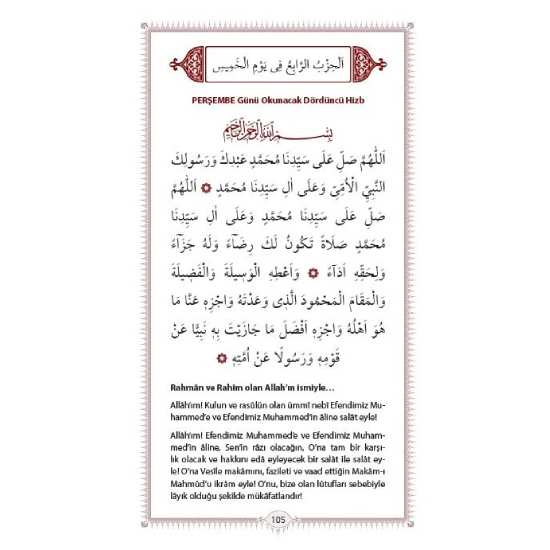 اَلْحِزْبُ الرَّابِعُ فِي يَوْمِ الْخَمِيسِ
PERŞEMBE Günü Okunacak Dördüncü Hizb
بِسْمِ اللّٰهِ الرَّحْمٰنِ الرَّحِيمِ
اَللّٰهُمَّ صَلِّ عَلَى سَيِّدِنَا مُحَمَّدٍ عَبْدِكَ وَرَسُولِكَ
النَّبِيِّ الْاُمِّيِّ وَعَلَى اٰلِ سَيِّدِنَا مُحَمَّدٍ ۞ اَللّٰهُمَّ
صَلِّ عَلَى سَيِّدِنَا مُحَمَّدٍ وَعَلَى اٰلِ سَيِّدِنَا
مُحَمَّدٍ صَلَاةً تَكُونُ لَكَ رِضَٓاءً وَلَهُ جَزَٓاءً
وَلِحَقِّهِ اَدَٓاءً ۞ وَاَعْطِهِ الْوَسِيلَةَ وَالْفَضِيلَةَ
وَالْمَقَامَ الْمَحْمُودَ الَّذِي وَعَدْتَهُ وَاجْزِهِ عَنَّا مَا
هُوَ اَهْلُهُ وَاجْزِهِ اَفْضَلَ مَا جَازَيْتَ بِهِ نَبِيًّا عَنْ
قَوْمِهِ وَرَسُولًا عَنْ اُمَّتِهِ ۞
Rahmân ve Rahîm olan Allah’ın ismiyle…
Allâh’ım! Kulun ve rasûlün olan ümmî nebî Efendimiz Mu-
hammed’e ve Efendimiz Muhammed’in âline salât eyle!
Allâh’ım! Efendimiz Muhammed’e ve Efendimiz Muham-
med’in âline, Sen’in râzı olacağın, O’na tam bir karşı-
lık olacak ve hakkını edâ eyleyecek bir salât ile salât ey-
le! O’na Vesîle makâmını, fazîleti ve vaad ettiğin Makâm-ı
Mahmûd’u ikrâm eyle! O’nu, bize olan lütufları sebebiyle
lâyık olduğu şekilde mükâfatlandır!
105